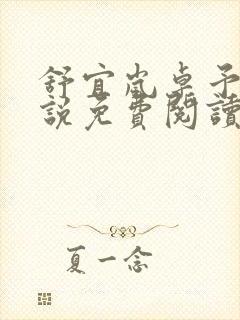 舒宜嵐卓予
說免費閱讀
夏一念